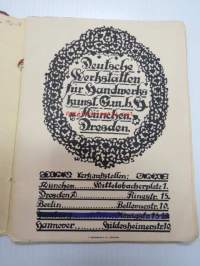 Deutsche
Werkstätten
für Handwerks
kunst. G.m.b.H
München
Dresden.
Verkaufstellen:
München. Wittelsbacherplatz 1.
Dresden A Ringstr. 15.
Berlin Bellevuestr. 10.
Hannover. Hildesheimerstr. 10